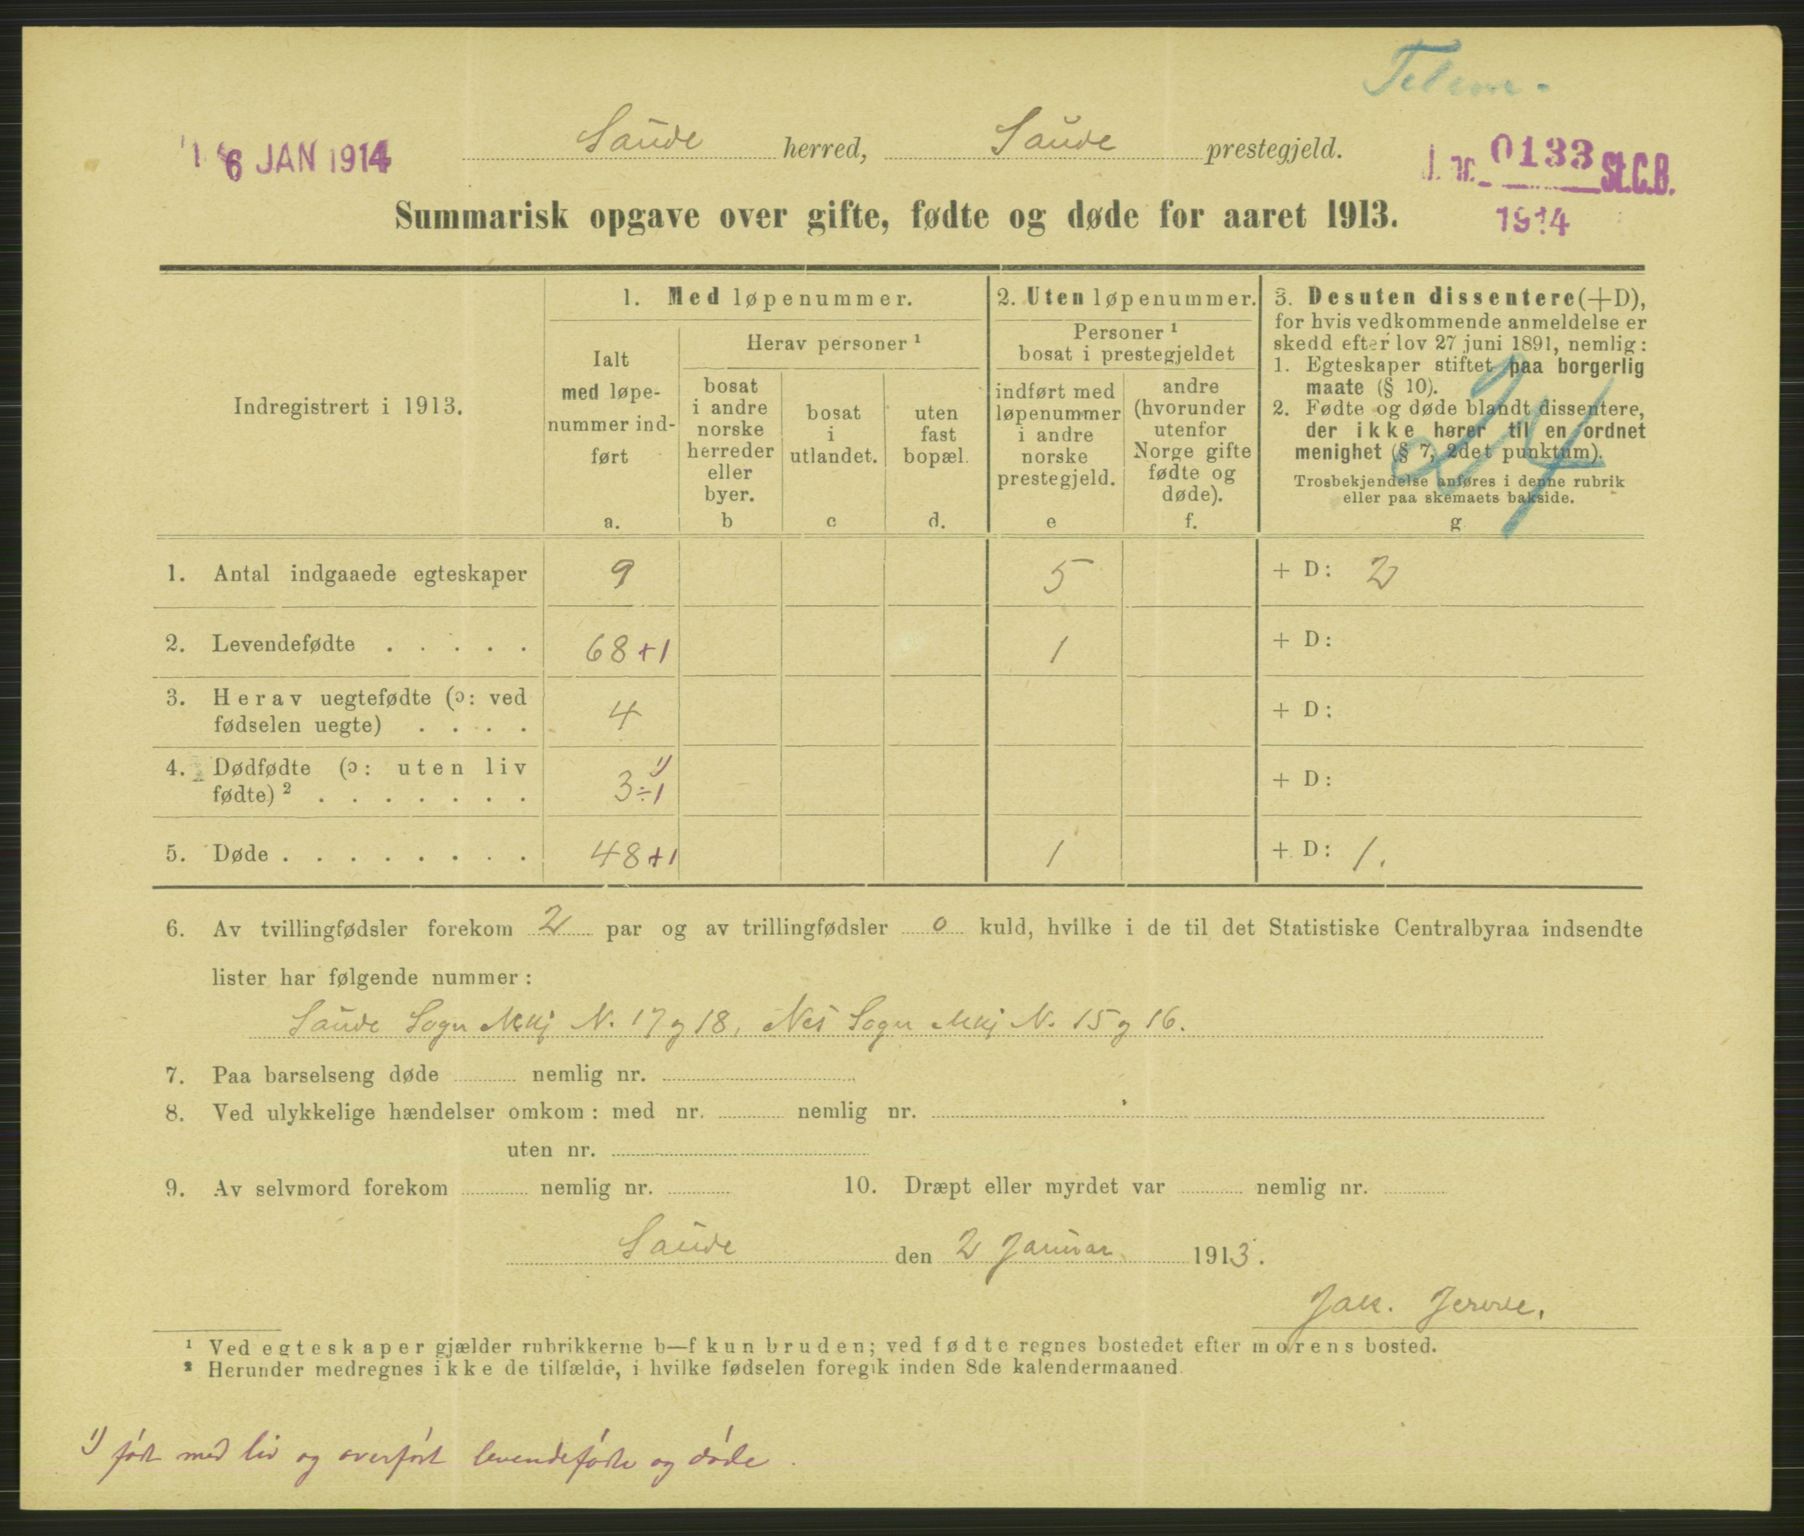 Telem.
6 JAN 1914
Saude herred, Saude prestegjeld.
J. nr. 0133 St.C.B.
1914
Summarisk opgave over gifte, fødte og døde for aaret 1913.
Indregistrert i 1913.
1. Med løpenummer.
Ialt
med løpe-
nummer ind-
ført
a.
Herav personer ¹
bosat
i andre
norske
herreder
eller
byer.
b
bosat
i
utlandet.
c
uten
fast
bopæl.
d.
2. Uten løpenummer.
Personer ¹
bosat i prestegjeldet
indført med
løpenummer
i andre
norske
prestegjeld.
e
andre
(hvorunder
utenfor
Norge gifte
fødte og
døde).
f.
3. Desuten dissentere (+D),
for hvis vedkommende anmeldelse er
skedd efter lov 27 juni 1891, nemlig:
1. Egteskaper stiftet paa borgerlig
maate (§ 10).
2. Fødte og døde blandt dissentere,
der ikke hører til en ordnet
menighet (§ 7, 2det punktum).
Trosbekjendelse anføres i denne rubrik
eller paa skemaets bakside.
g
24
1. Antal indgaaede egteskaper 9 5 + D: 2
2. Levendefødte . . . . . 68 +1 1 + D:
3. Herav uegtefødte (ɔ: ved
fødselen uegte) . . . . 4 + D:
4. Dødfødte (ɔ: uten liv
fødte) ² . . . . . . . 3 ÷1 ¹) + D:
5. Døde . . . . . . . . 48 +1 1 + D: 1.
6. Av tvillingfødsler forekom 2 par og av trillingfødsler 0 kuld, hvilke i de til det Statistiske Centralbyraa indsendte
lister har følgende nummer:
Saude Sogn Mkj N. 17 og 18, Nes Sogn Mkj N. 15 og 16.
7. Paa barselseng døde nemlig nr.
8. Ved ulykkelige hændelser omkom: med nr. nemlig nr.
uten nr.
9. Av selvmord forekom nemlig nr. 10. Dræpt eller myrdet var nemlig nr.
Saude den 2 Januar 1913.
Jak.
¹ Ved egteskaper gjælder rubrikkerne b—f kun bruden; ved fødte regnes bostedet efter morens bosted.
² Herunder medregnes ikke de tilfælde, i hvilke fødselen foregik inden 8de kalendermaaned.
¹) født med liv og overført levendefødte og døde.